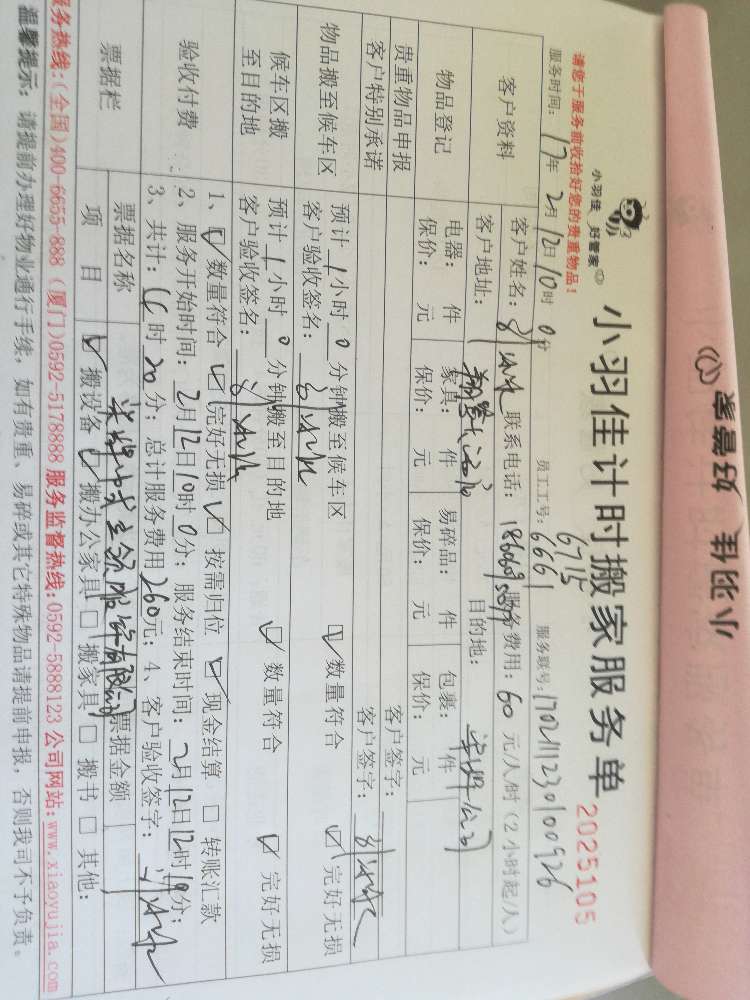 小羽佳 好管家
小羽佳 好管家
小羽佳计时搬家服务单
2025105
请您于服务前收拾好您的贵重物品！
员工工号：6715
6661
服务联号：1702111230100926
服务时间：17年2月12日10时0分
客户资料
客户姓名：
联系电话：
服务费用：60元/人/时（2小时起/人）
客户地址：
目的地：
物品登记
电器： 件 家具： 件 易碎品： 件 包裹： 件
保价： 元 保价： 元 保价： 元 保价： 元
贵重物品申报
客户签字：
客户特别承诺
客户签字：
物品搬至候车区
预计1小时0分钟搬至候车区
☑数量符合 ☑完好无损
客户验收签名：
候车区搬至目的地
预计1小时0分钟搬至目的地
☑数量符合 ☑完好无损
客户验收签名：
验收付费
1、☑数量符合 ☑完好无损 ☑按需归位 ☑现金结算 □转账汇款
2、服务开始时间：2月12日10时0分；服务结束时间：2月12日12时10分；
3、共计： 时20分；总计服务费用260元；4、客户验收签字：
票据栏
票据名称
票据金额
项 目
☑搬设备 ☑搬办公家具 □搬家具 □搬书 □其他：
服务热线：(全国)400-6655-888 (厦门)0592-5178888 服务监督热线：0592-5888123 公司网站：www.xiaoyujia.com
温馨提示：请提前办理好物业通行手续，如有贵重、易碎或其它特殊物品请提前申报，否则我司不予负责。